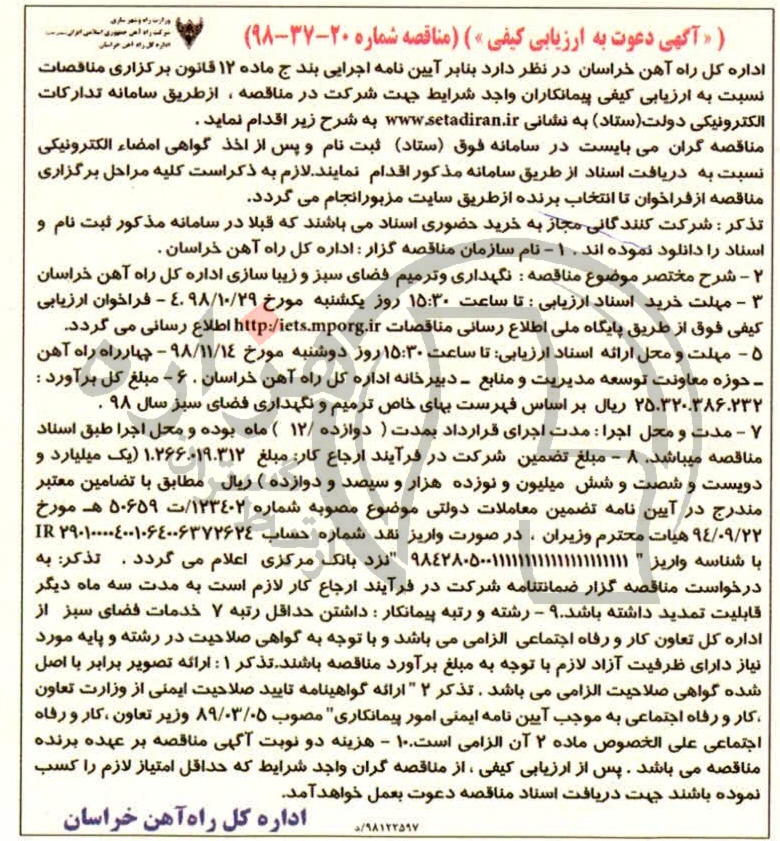 وزارت راه و شهر سازی
شرکت راه آهن جمهوری اسلامی ایران
اداره کل راه آهن خراسان
( « آگهی دعوت به ارزیابی کیفی » ) (مناقصه شماره ۲۰-۳۷-۹۸)
اداره کل راه آهن خراسان در نظر دارد بنابر آیین نامه اجرایی بند ج ماده ۱۲ قانون برگزاری مناقصات
نسبت به ارزیابی کیفی پیمانکاران واجد شرایط جهت شرکت در مناقصه ، ازطریق سامانه تدارکات
الکترونیکی دولت(ستاد) به نشانی www.setadiran.ir به شرح زیر اقدام نماید .
مناقصه گران می بایست در سامانه فوق (ستاد) ثبت نام و پس از اخذ گواهی امضاء الکترونیکی
نسبت به دریافت اسناد از طریق سامانه مذکور اقدام نمایند.لازم به ذکراست کلیه مراحل برگزاری
مناقصه ازفراخوان تا انتخاب برنده ازطریق سایت مزبورانجام می گردد.
تذکر : شرکت کنندگانی مجاز به خرید حضوری اسناد می باشند که قبلا در سامانه مذکور ثبت نام و
اسناد را دانلود نموده اند . ۱- نام سازمان مناقصه گزار : اداره کل راه آهن خراسان .
۲ - شرح مختصر موضوع مناقصه : نگهداری وترمیم فضای سبز و زیبا سازی اداره کل راه آهن خراسان
۳ - مهلت خرید اسناد ارزیابی : تا ساعت ۱۵:۳۰ روز یکشنبه مورخ ۹۸/۱۰/۲۹ .۴ - فراخوان ارزیابی
کیفی فوق از طریق پایگاه ملی اطلاع رسانی مناقصات http:/iets.mporg.ir اطلاع رسانی می گردد.
۵ - مهلت و محل ارائه اسناد ارزیابی: تا ساعت ۱۵:۳۰ روز دوشنبه مورخ ۹۸/۱۱/۱۴ - چهارراه راه آهن
ـ حوزه معاونت توسعه مدیریت و منابع ـ دبیرخانه اداره کل راه آهن خراسان . ۶ - مبلغ کل برآورد :
۲۵.۳۲۰.۳۸۶.۲۳۲ ریال بر اساس فهرست بهای خاص ترمیم و نگهداری فضای سبز سال ۹۸ .
۷ - مدت و محل اجرا : مدت اجرای قرارداد بمدت ( دوازده /۱۲ ) ماه بوده و محل اجرا طبق اسناد
مناقصه میباشد. ۸ - مبلغ تضمین شرکت در فرآیند ارجاع کار: مبلغ ۱.۲۶۶.۰۱۹.۳۱۲ (یک میلیارد و
دویست و شصت و شش میلیون و نوزده هزار و سیصد و دوازده ) ریال مطابق با تضامین معتبر
مندرج در آیین نامه تضمین معاملات دولتی موضوع مصوبه شماره ۱۲۳۴۰۲/ت ۵۰۶۵۹ هـ مورخ
۹۴/۰۹/۲۲ هیات محترم وزیران ، در صورت واریز نقد شماره حساب
با شناسه واریز " " نزد بانک مرکزی اعلام می گردد . تذکر: به
درخواست مناقصه گزار ضمانتنامه شرکت در فرآیند ارجاع کار لازم است به مدت سه ماه دیگر
قابلیت تمدید داشته باشد.۹ - رشته و رتبه پیمانکار : داشتن حداقل رتبه ۷ خدمات فضای سبز از
اداره کل تعاون کار و رفاه اجتماعی الزامی می باشد و با توجه به گواهی صلاحیت در رشته و پایه مورد
نیاز دارای ظرفیت آزاد لازم با توجه به مبلغ برآورد مناقصه باشند.تذکر ۱ : ارائه تصویر برابر با اصل
شده گواهی صلاحیت الزامی می باشد . تذکر ۲ " ارائه گواهینامه تایید صلاحیت ایمنی از وزارت تعاون
،کار و رفاه اجتماعی به موجب آیین نامه ایمنی امور پیمانکاری" مصوب ۸۹/۰۳/۰۵ وزیر تعاون ،کار و رفاه
اجتماعی علی الخصوص ماده ۲ آن الزامی است.۱۰ - هزینه دو نوبت آگهی مناقصه بر عهده برنده
مناقصه می باشد . پس از ارزیابی کیفی ، از مناقصه گران واجد شرایط که حداقل امتیاز لازم را کسب
نموده باشند جهت دریافت اسناد مناقصه دعوت بعمل خواهدآمد.
اداره کل راه‌آهن خراسان
۹۸۱۲۲۵۹۷/د